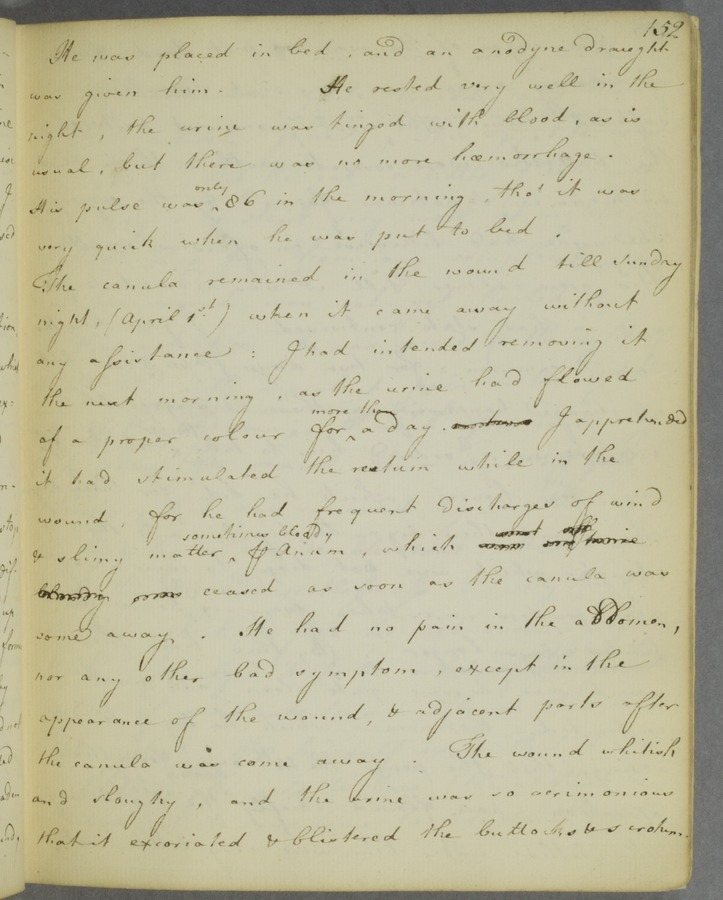 152
He was placed in bed, and an anodyne draught
was given him. He rested very well in the
night, the urine was tinged with blood, as is
usual, but there was no more hæmorrhage.
His pulse was only 86 in the morning, tho' it was
very quick when he was put to bed.
The canula remained in the wound till sunday
night, (April 1st.) when it came away without
any assistance: I had intended removing it
the next morning, as the urine had flowed
of a proper colour for more than a day. I apprehended
it had stimulated the rectum while in the
wound, for he had frequent discharges of wind
& slimy sometimes bloody matter, Anum, which
ceased as soon as the canula was
come away. He had no pain in the abdomen,
nor any other bad symptom, except in the
appearance of the wound, & adjacent parts after
the canula was come away. The wound whitish
and sloughy, and the urine was so acrimonious
that it excoriated & blistered the buttocks & scrotum.